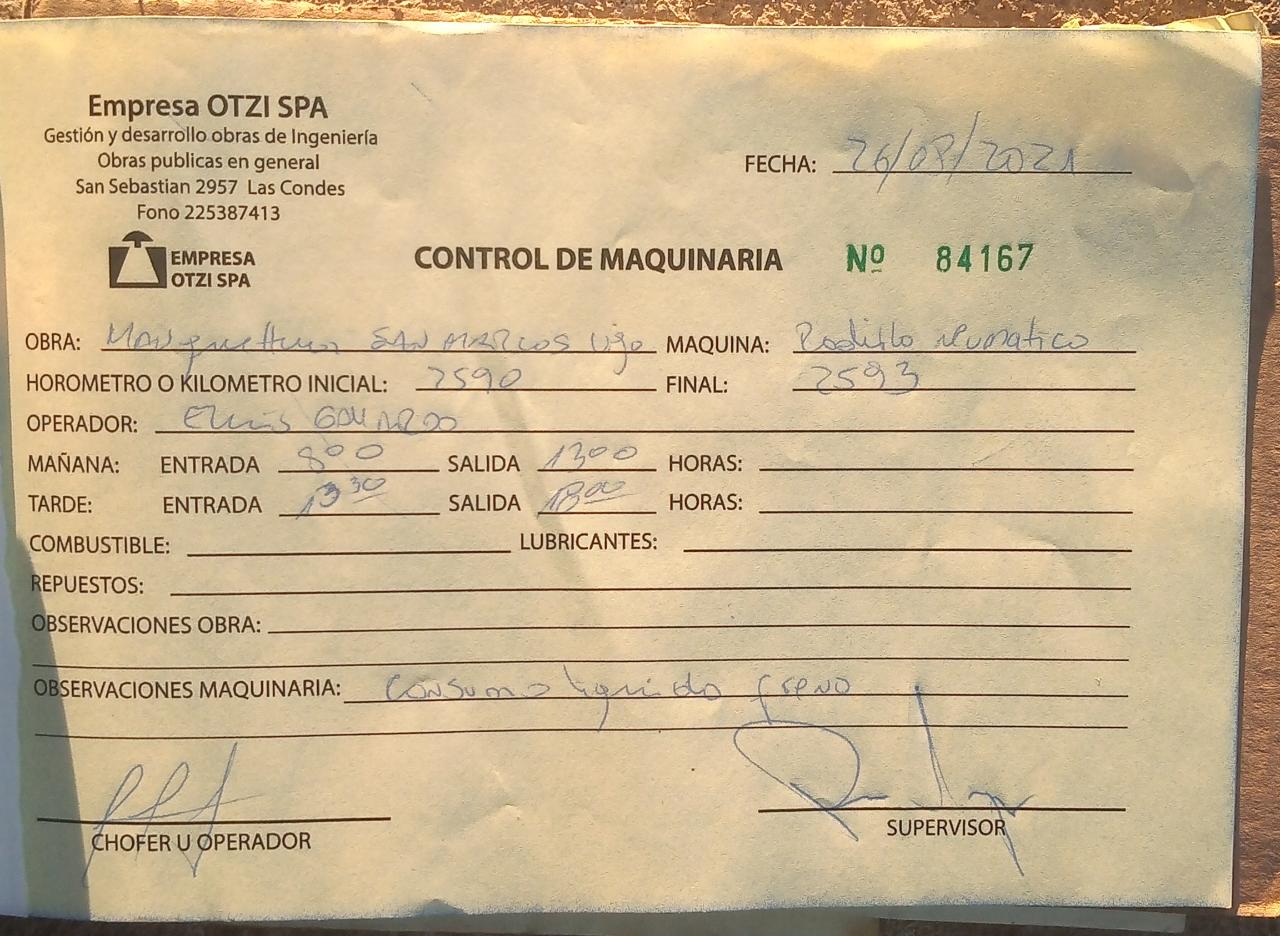 Empresa OTZI SPA
Gestión y desarrollo obras de Ingeniería
Obras publicas en general
San Sebastian 2957 Las Condes
Fono 225387413
FECHA: 26/08/2021
EMPRESA
OTZI SPA
CONTROL DE MAQUINARIA Nº 84167
OBRA: SAN MARCOS MAQUINA: Rodillo Neumatico
HOROMETRO O KILOMETRO INICIAL: 2590 FINAL: 2593
OPERADOR:
MAÑANA: ENTRADA 800 SALIDA 1300 HORAS:
TARDE: ENTRADA 13 30 SALIDA 18 00 HORAS:
COMBUSTIBLE: LUBRICANTES:
REPUESTOS:
OBSERVACIONES OBRA:
OBSERVACIONES MAQUINARIA: Consumo liquido freno
CHOFER U OPERADOR
SUPERVISOR